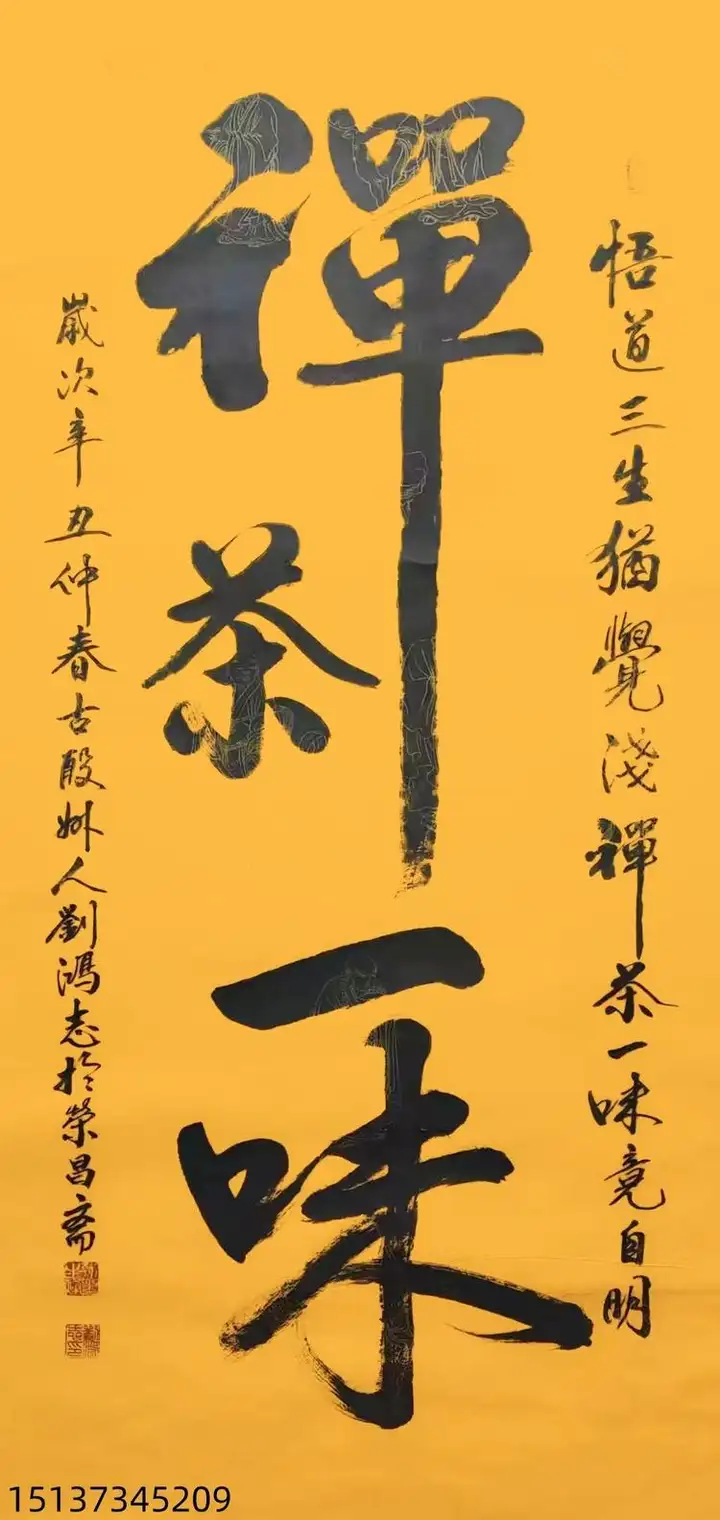 悟道三生猶覺淺禪茶一味竟自明
禪茶一味
歲次辛丑仲春古殷州人劉鴻志於榮昌齋
15137345209